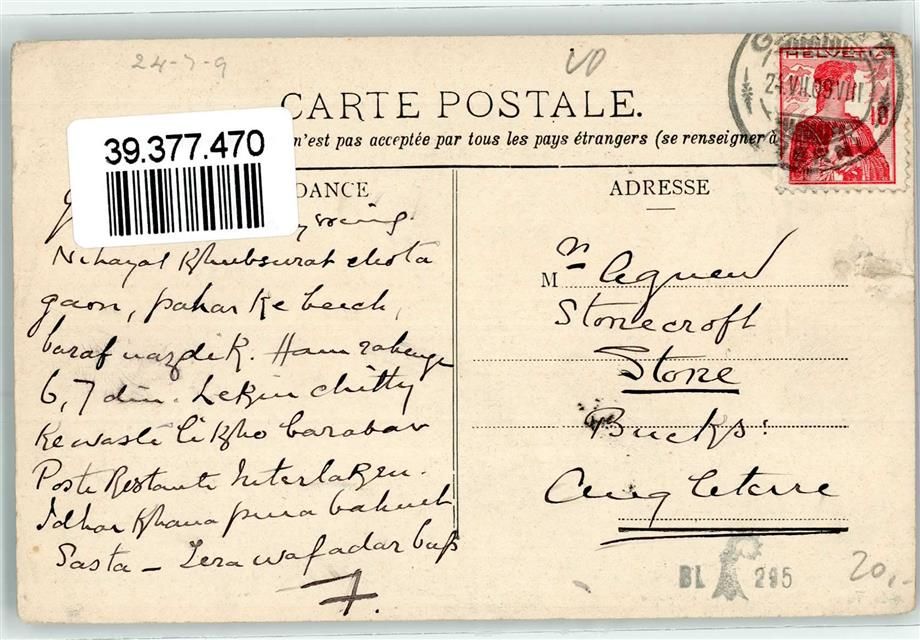 24-7-9
CARTE POSTALE.
39.377.470
n'est pas acceptée par tous les pays étrangers (se renseigner à
HELVETIA
10
DANCE
ADRESSE
Nihayat Khubsurat chota
gaon, pahar ke beech,
baraf nazdik. Ham rahenge
6, 7 din. Lekin chitty
Kewasti likho barabar
Poste Restante Interlaken.
Idhar Khana pina bahut
Sasta – Tera wafadar bap
7.
Mr Agnew
Stonecroft
Stone
Bucks:
Angleterre
BL 295
20,-